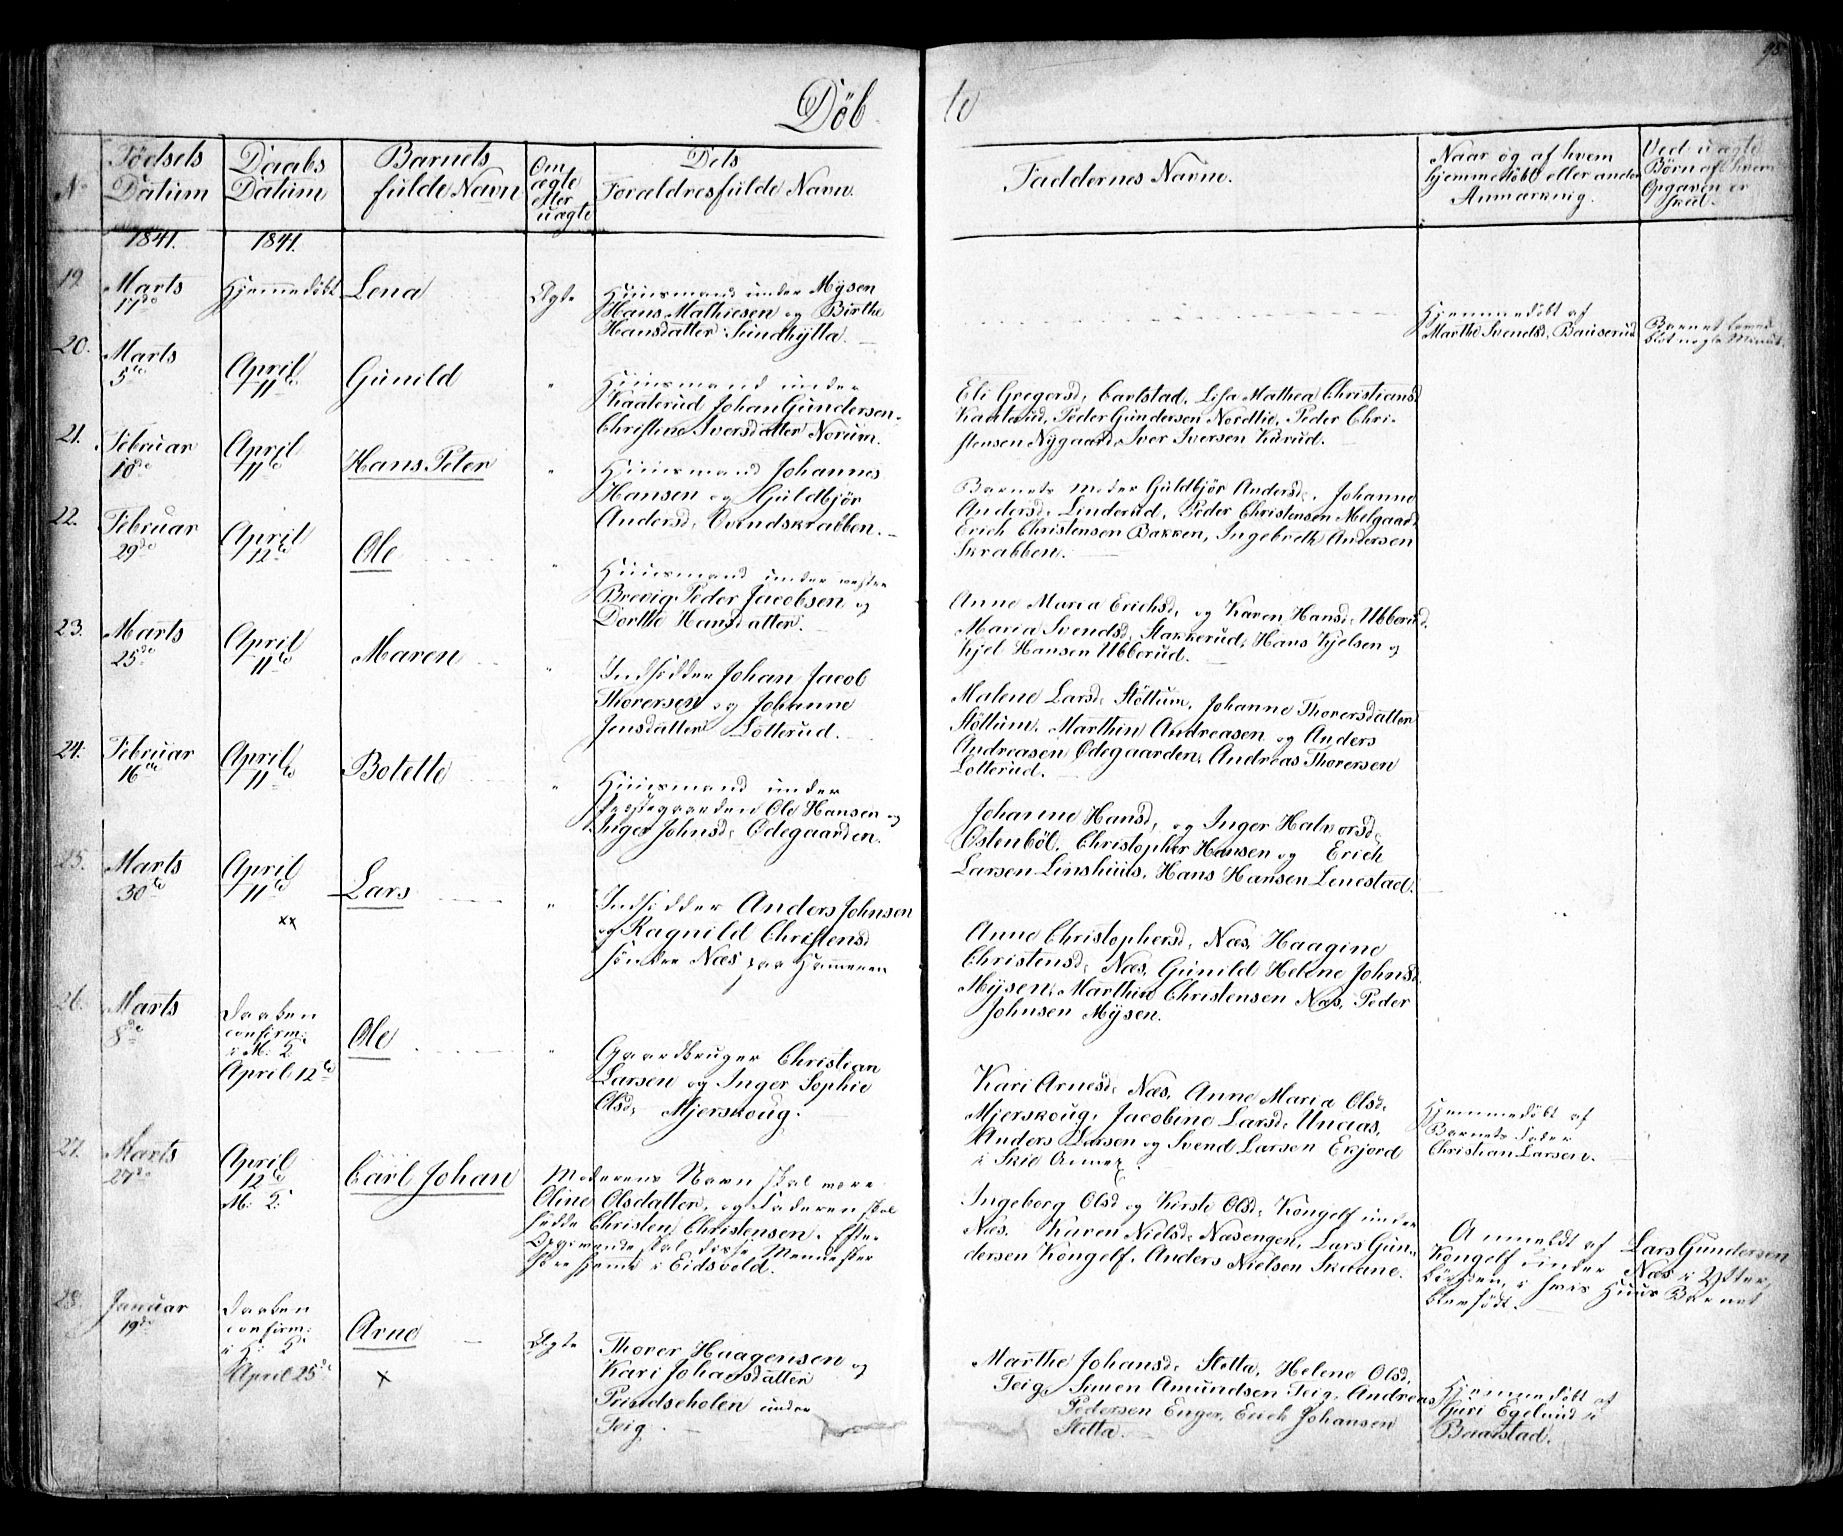 95
Döb te
No
Födsels Datum
Daabs Datum
Barnets fulde Navn
Om ægte eller uægte
Dets Forældres fulde Navn.
Faddernes Navne.
Naar og af hvem hjemmedöbt eller anden Anmærkning.
Ved uægte Börn af hvem Opgaven er skeed.
1841. 1841.
19. Marts 17de
Hjemmedöbt
Lena
Ægte
Huusmand under Mysen
Hans Mathiesen og Birthe
Hansdatter Sundbytta.
Hjemmedöbt af
Marthe Svendsd, Bauserud
Barnet levede
blot nogle Minut.
20. Marts 5te
April 11te
Gunild
"
Huusmand under
Kaaterud Johan Gundersen
Christine Iversdatter Norum.
Eli Gregorsd, Carlstad, Lisa Mathea Christiansd
Kaaterud, Peder Gundersen Nordtie, Peder Chri-
stensen Nygaard, Iver Iversen Kurud.
21. Februar 10de
April 11te
Hans Peter
"
Huusmand Johannes
Hansen og Guldbjör
Andersd, Svendskrabben.
Barnets moder Guldbjör Andersd, Johanne
Andersd, Linderud, Peder Christensen Melgaard
Erich Christensen Bakken, Ingebreth Andersen
Skrabben.
22. Februar 29de
April 12te
Ole
"
Huusmand under vestre
Brevig Peder Jacobsen og
Dorthe Hansdatter.
Anne Maria Erichsd, og Karen Hansd, Ubberud,
Maria Svendsd, Stakkerud, Hans Kjelsen og
Kjel Hansen Ubberud.
23. Marts 25de
April 11te
Maren
"
Indsidder Johan Jacob
Thoresen og Johanne
Jensdatter Lotterud.
Malene Larsd, Stöttum, Johanne Thoversdatter
Stöttum, Marthin Andreasen og Anders
Andreasen Ödegaarden, Andreas Thoversen
Lotterud.
24. Februar 16de
April 11te
Botette
"
Huusmand under
Præstegaarden Ole Hansen og
Inger Johnsd, Ödegaarden.
Johanne Hansd, og Inger Halvorsd,
Östenböl, Christopher Hansen og Erich
Larsen Linshuus, Hans Hansen Lenestad.
25. Marts 30te
April 11te
xx
Lars
"
Indsidder Anders Johnsen
og Ragnild Christensd
söndre Næs paa Hammeren
Anne Christophersd, Næs, Haagine
Christensd, Næs, Gunild Helene Johnsd
Mysen, Marthin Christensen Næs, Peder
Johnsen Mysen.
26. Marts 8de
Daaben
confirm:
i M: 2
April 12te
Ole
"
Gaardbruger Christian
Larsen og Inger Sophie
Olsd, Mjerskoug.
Kari Arnesd, Næs, Anne Maria Olsd,
Mjerskoug, Jacobine Larsd, Unaas,
Anders Larsen og Svend Larsen Exjord
i Skie Annex.
Hjemmedöbt af
Barnets Fader
Christian Larsen.
27. Marts 27de
April 12te
M: 2:
Carl Johan
Moderens Navn skal være
Oline Olsdatter, og Faderen skal
hedde Christen Christensen. Efter
Opgivende skal disse Mennesker
höre hjemme i Eidsvold.
Ingeborg Olsd og Kirsti Olsd, Kongelf under
Næs. Karen Nielsd, Næsengen, Lars Gun-
dersen Kongelf, Anders Nielsen Skaane.
Anmeldt af Lars Gundersen
Kongelf under Næs i Ytter-
bögden, i hvis Huus Barnet
blev födt.
28. Januar 19de
Daaben
confirm:
April 25de
Arne
x
Ægte
Thorer Haagensen og
Kari Johansdatter
Prindseholen under
Teig.
Marthe Johansd, Stetta, Helene Olsd,
Teig, Simen Amundsen Teig, Andreas
Pedersen Enger, Erich Johansen
Stetta.
Hjemmedöbt af
Guri Egelund i
Baastad.